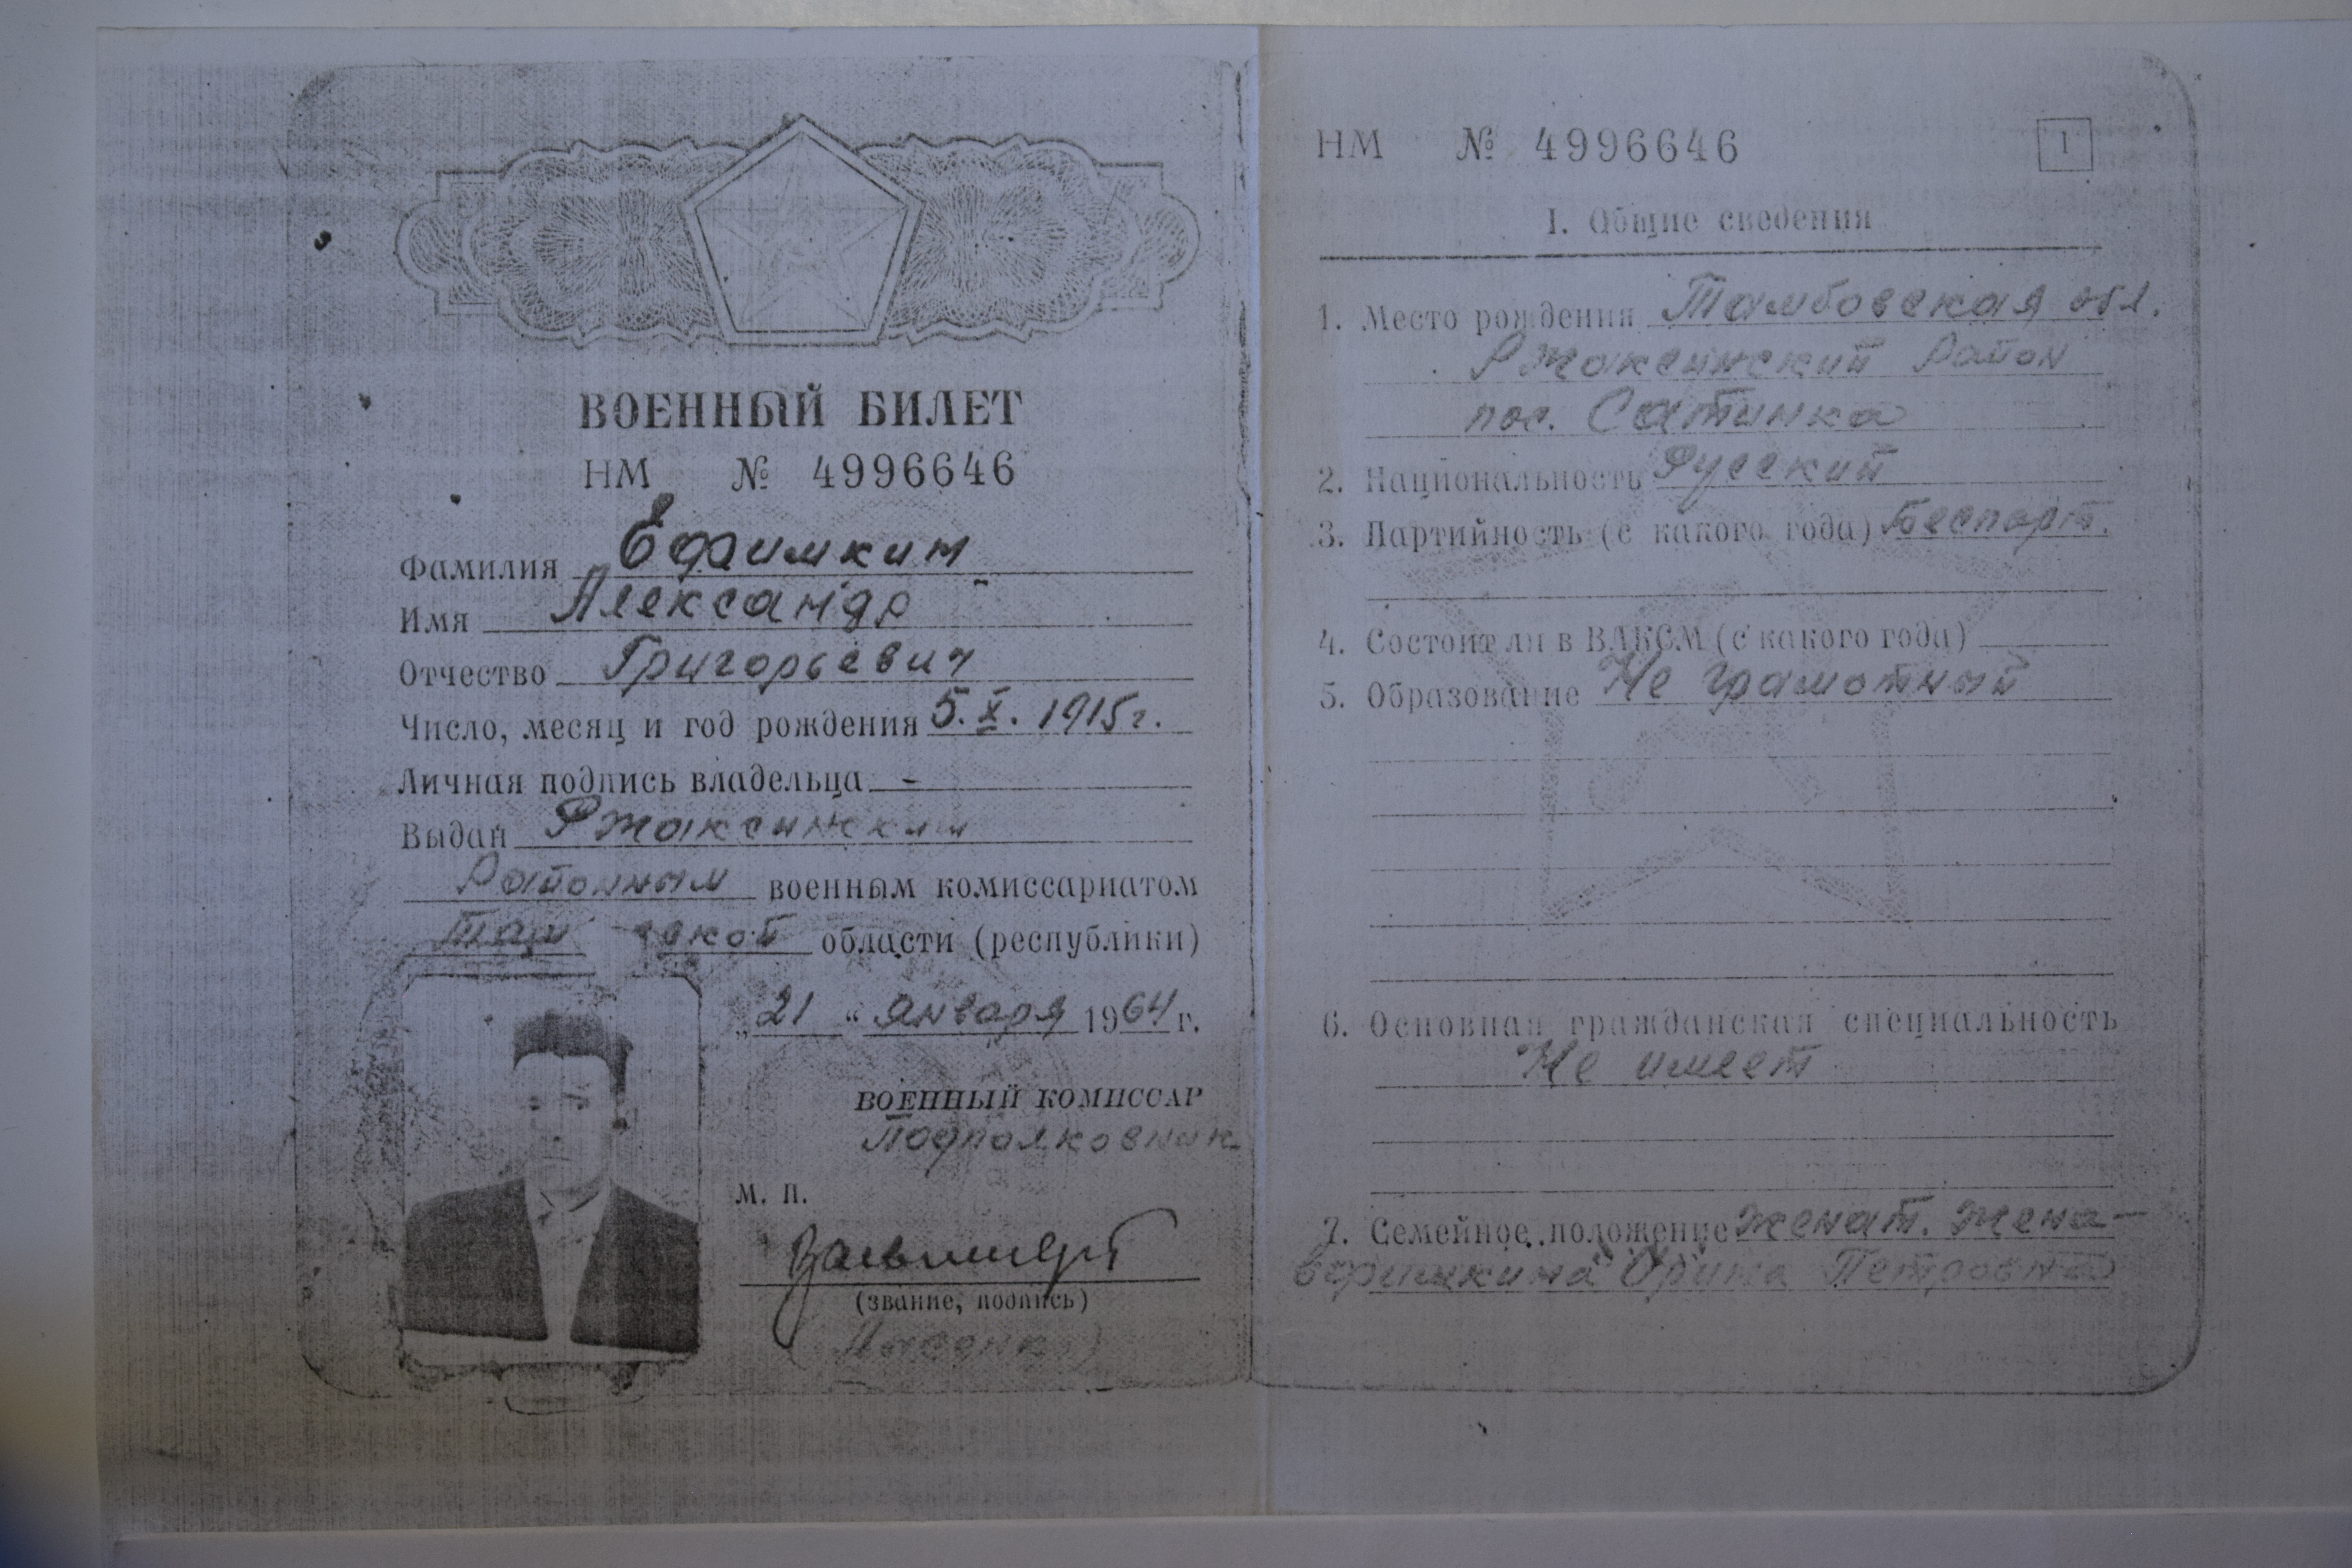 ВОЕННЫЙ БИЛЕТ
НМ № 4996646
Фамилия Ефимкин
Имя Александр
Отчество Григорьевич
Число, месяц и год рождения 5.X. 1915г.
Личная подпись владельца -
Выдан Ржаксинским
Районным военным комиссариатом
Там ской области (республики)
„21“ января 1964 г.
ВОЕННЫЙ КОМИССАР
Подполковник
М. П.
(звание, подпись)
НМ № 4996646
1
I. Общие сведения
1. Место рождения Тамбовская обл.
Ржаксинский район
пос. Сатинка
2. Национальность Русский
3. Партийность (с какого года) Беспарт.
4. Состоит ли в ВЛКСМ (с какого года)
5. Образование Не грамотный
6. Основная гражданская специальность
Не имеет
7. Семейное положение женат. жена-
Ефимкина Орина Петровна